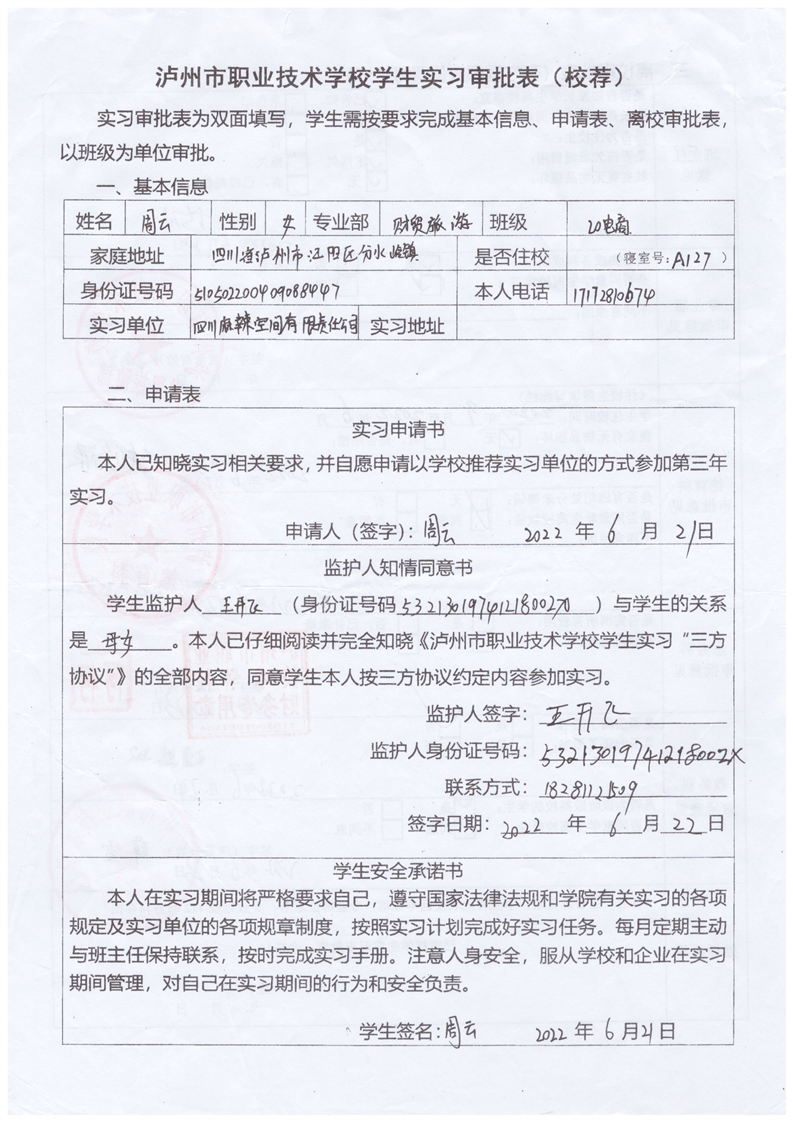 泸州市职业技术学校学生实习审批表（校荐）
实习审批表为双面填写，学生需按要求完成基本信息、申请表、离校审批表，
以班级为单位审批。
一、基本信息
姓名 周云 性别 女 专业部 财贸旅游 班级 20电商
家庭地址 四川省泸州市江阳区分水岭镇 是否住校 （寝室号：A127）
身份证号码 510502200409088447 本人电话 17172810674
实习单位 四川麻辣空间有限责任公司 实习地址
二、申请表
实习申请书
本人已知晓实习相关要求，并自愿申请以学校推荐实习单位的方式参加第三年
实习。
申请人（签字）：周云 2022 年 6 月 21日
监护人知情同意书
学生监护人 王开飞 （身份证号码 ）与学生的关系
是 母女 。本人已仔细阅读并完全知晓《泸州市职业技术学校学生实习“三方
协议”》的全部内容，同意学生本人按三方协议约定内容参加实习。
监护人签字： 王开飞
监护人身份证号码： 53213019741218002X
联系方式： 18281121509
签字日期：2022 年 6 月 22 日
学生安全承诺书
本人在实习期间将严格要求自己，遵守国家法律法规和学院有关实习的各项
规定及实习单位的各项规章制度，按照实习计划完成好实习任务。每月定期主动
与班主任保持联系，按时完成实习手册。注意人身安全，服从学校和企业在实习
期间管理，对自己在实习期间的行为和安全负责。
学生签名：周云 2022 年 6 月21日